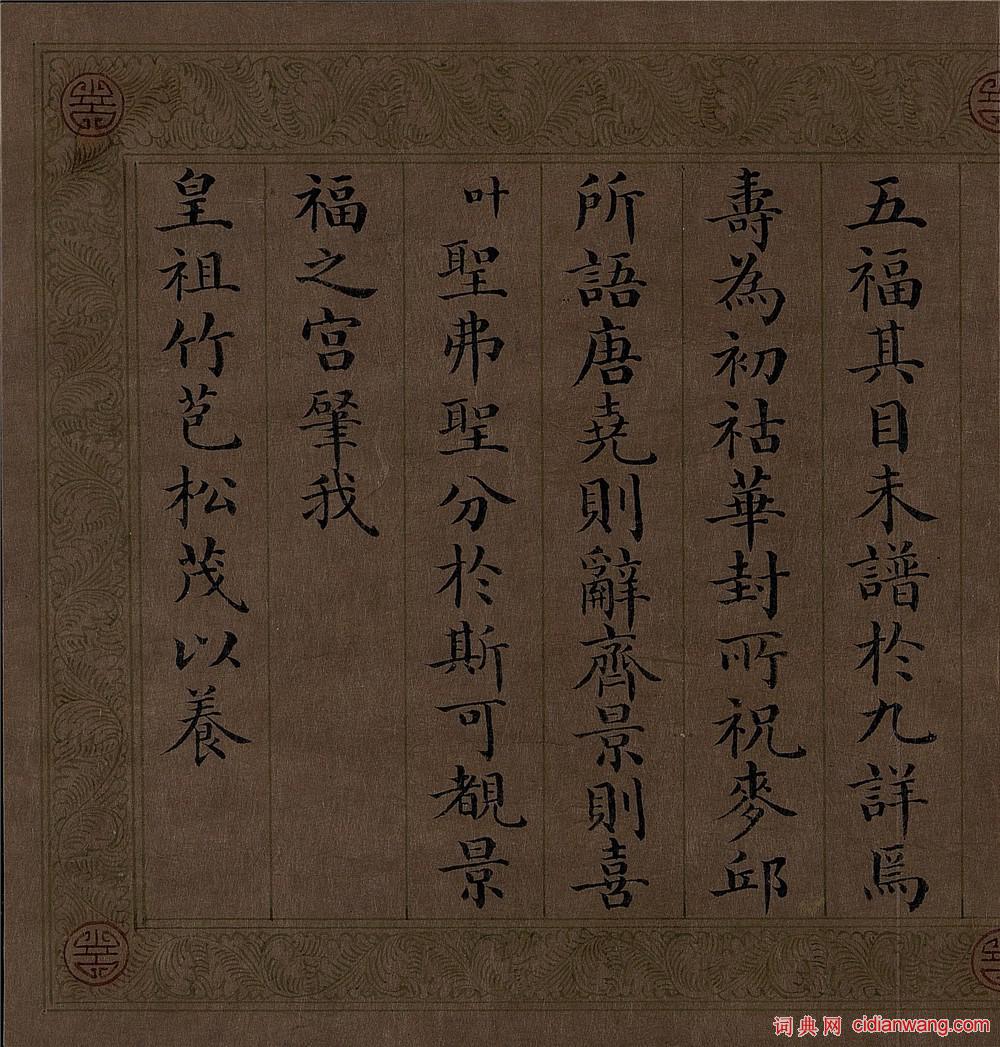 五福其目未譜於九詳焉
壽為初祜華封所祝麥邱
所語唐堯則辭齊景則喜
叶聖弗聖分於斯可覩景
福之宮肇我
皇祖竹苞松茂以養
词典网 cidianwang.com